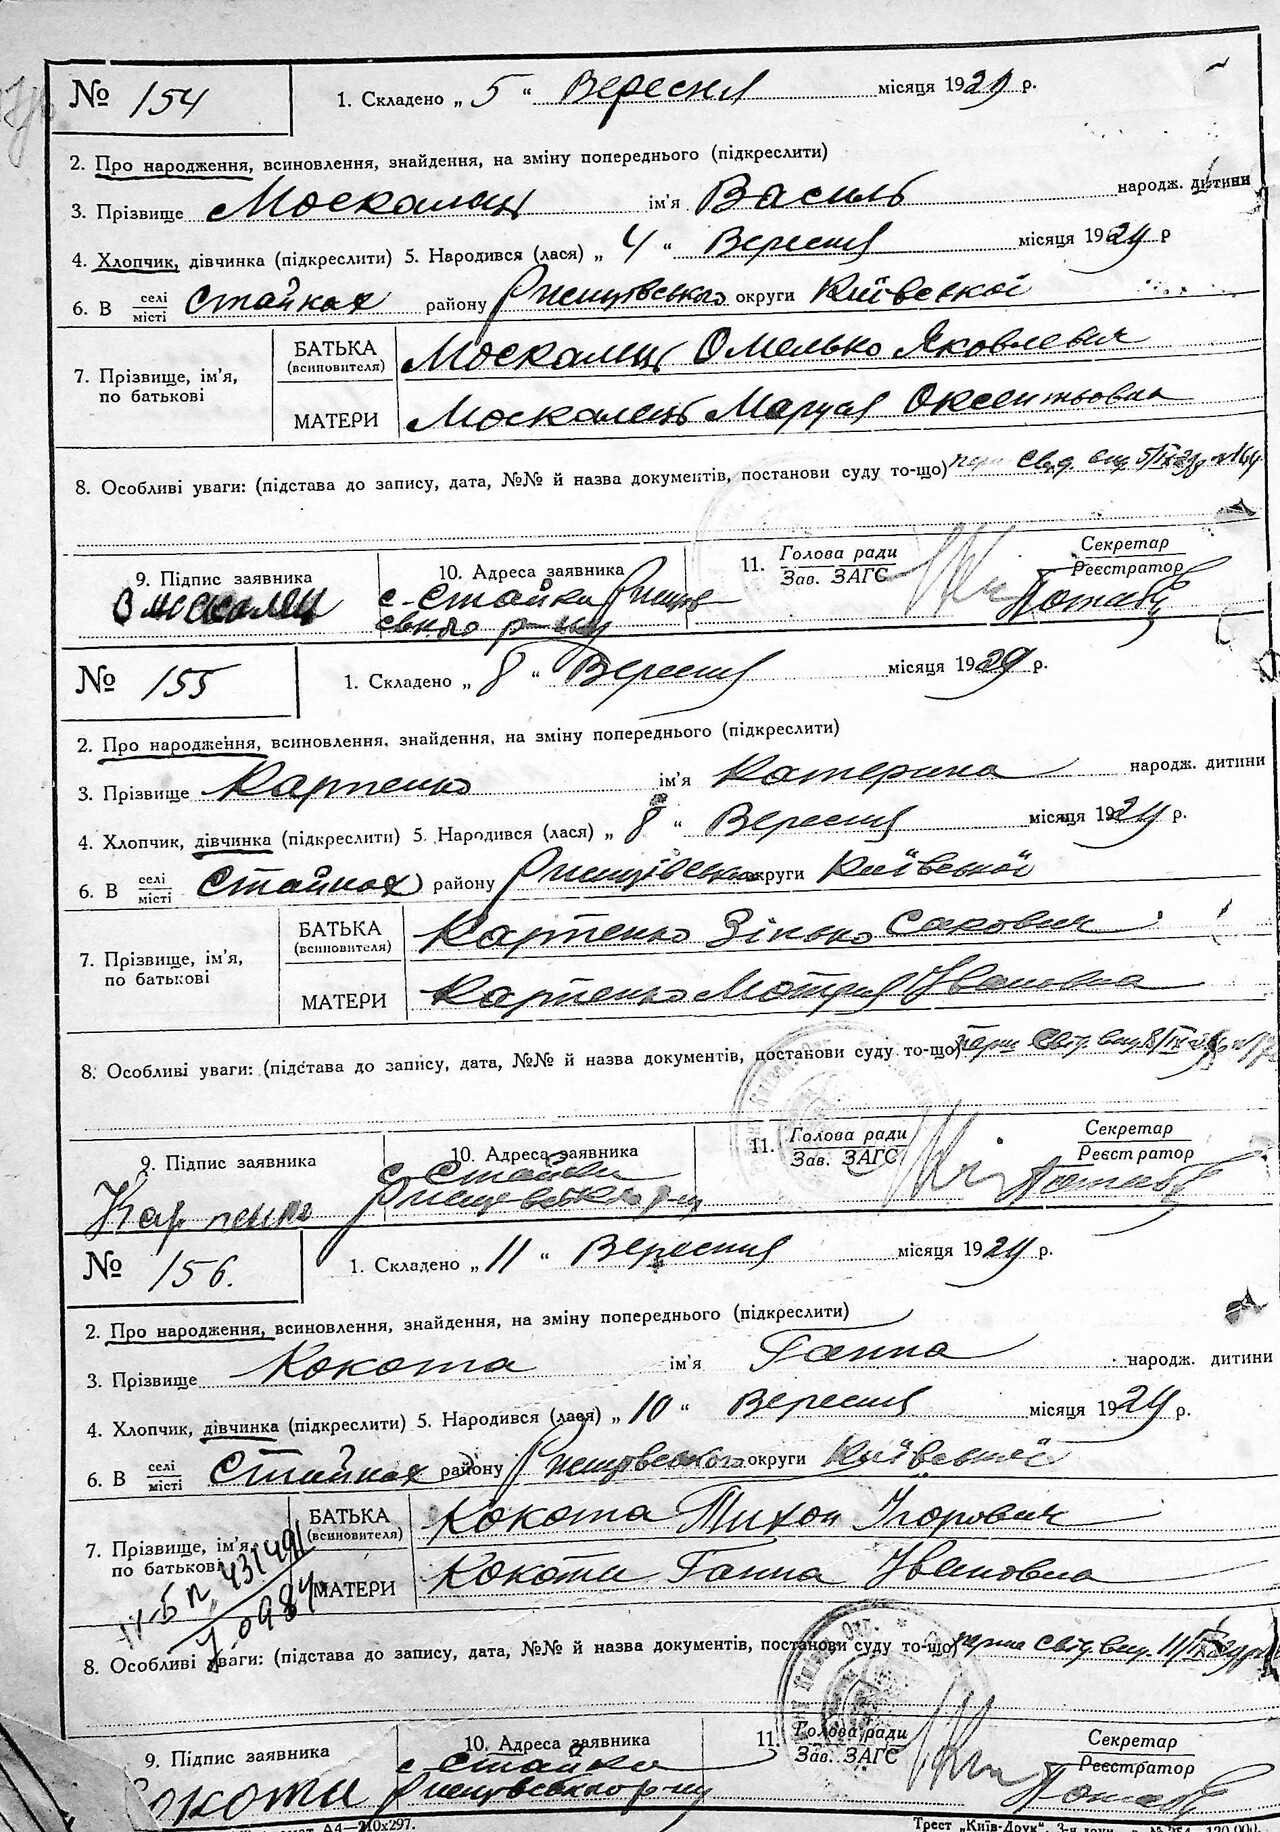 № 154
1. Складено „ 5 “ Вересня місяця 1929 р.
2. Про народження, всиновлення, знайдення, на зміну попереднього (підкреслити)
3. Прізвище Москалець ім'я Василь народж. дитини
4. Хлопчик, дівчинка (підкреслити) 5. Народився (лася) „ 4 “ Вересня місяця 1929 р
6. В селі місті Стайках району Ржищовського округи Київської
7. Прізвище, ім'я, по батькові
БАТЬКА (всиновителя) Москалець Омелько Яковлевич
МАТЕРИ Москалець Маруся Оксентьовна
8. Особливі уваги: (підстава до запису, дата, №№ й назва документів, постанови суду то-що)
9. Підпис заявника
О Москалец
10. Адреса заявника
с. Стайки Ржищовського р-ну
11. Голова ради
Зав. ЗАГС
Секретар
Реєстратор
№ 155
1. Складено „ 8 “ Вересня місяця 1929 р.
2. Про народження, всиновлення, знайдення, на зміну попереднього (підкреслити)
3. Прізвище Карпенко ім'я Катерина народж. дитини
4. Хлопчик, дівчинка (підкреслити) 5. Народився (лася) „ 8 “ Вересня місяця 1929 р.
6. В селі місті Стайках району Ржищівського округи Київської
7. Прізвище, ім'я, по батькові
БАТЬКА (всиновителя) Карпенко Зінько Сакович
МАТЕРИ Карпенко Мотря Івановна
8. Особливі уваги: (підстава до запису, дата, №№ й назва документів, постанови суду то-що)
9. Підпис заявника
Карпенко
10. Адреса заявника
с Стайки
Ржищевського р-ну
11. Голова ради
Зав. ЗАГС
Секретар
Реєстратор
№ 156.
1. Складено „ 11 “ Вересня місяця 1929 р.
2. Про народження, всиновлення, знайдення, на зміну попереднього (підкреслити)
3. Прізвище Кокота ім'я Ганна народж. дитини
4. Хлопчик, дівчинка (підкреслити) 5. Народився (лася) „ 10 “ Вересня місяця 1929 р.
6. В селі місті Стайках району Ржищовського округи Київської
7. Прізвище, ім'я, по батькові
БАТЬКА (всиновителя) Кокота Тихон Ігорович
МАТЕРИ Кокота Ганна Івановна
8. Особливі уваги: (підстава до запису, дата, №№ й назва документів, постанови суду то-що)
9. Підпис заявника
Кокоти
10. Адреса заявника
с Стайки
Ржищовського р-ну
11. Голова ради
Зав. ЗАГС
Секретар
Реєстратор
А4—210х297.
Трест „Київ-Друк“,